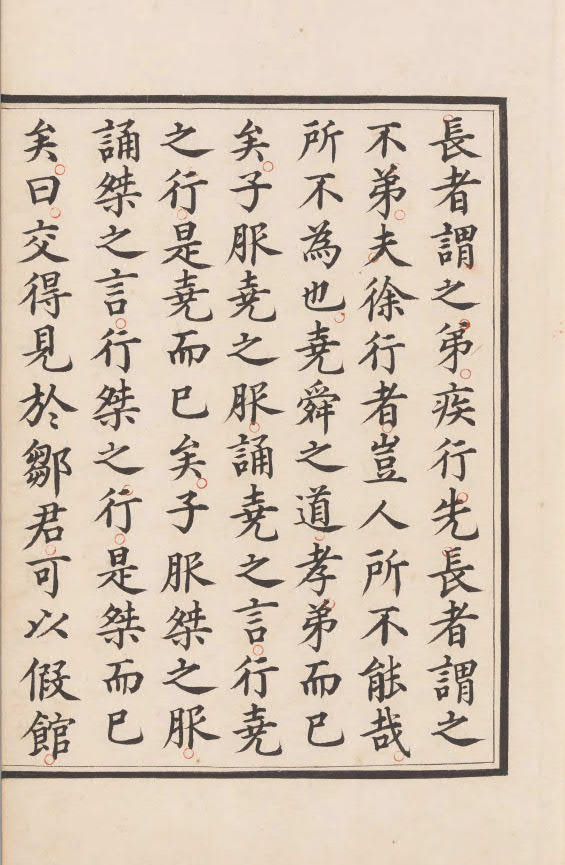 長者謂之弟疾行先長者謂之
不弟夫徐行者豈人所不能哉
所不為也堯舜之道孝弟而已
矣子服堯之服誦堯之言行堯
之行是堯而已矣子服桀之服
誦桀之言行桀之行是桀而已
矣曰交得見於鄒君可以假館